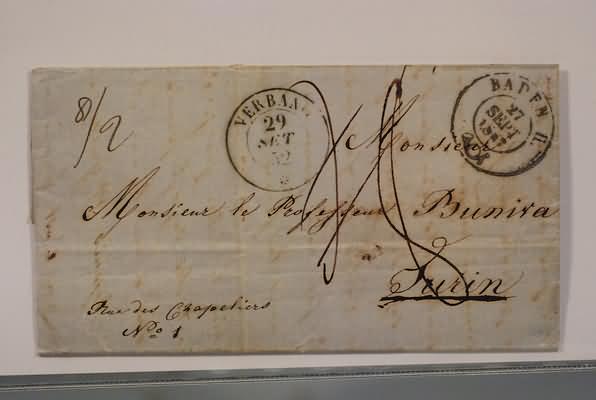 8/2
VERBANO
29
SET
52
BADEN
27
SEPT
Monsieur
Monsieur le Professeur Buniva
à
Turin
Rue des Chapeliers
No 1